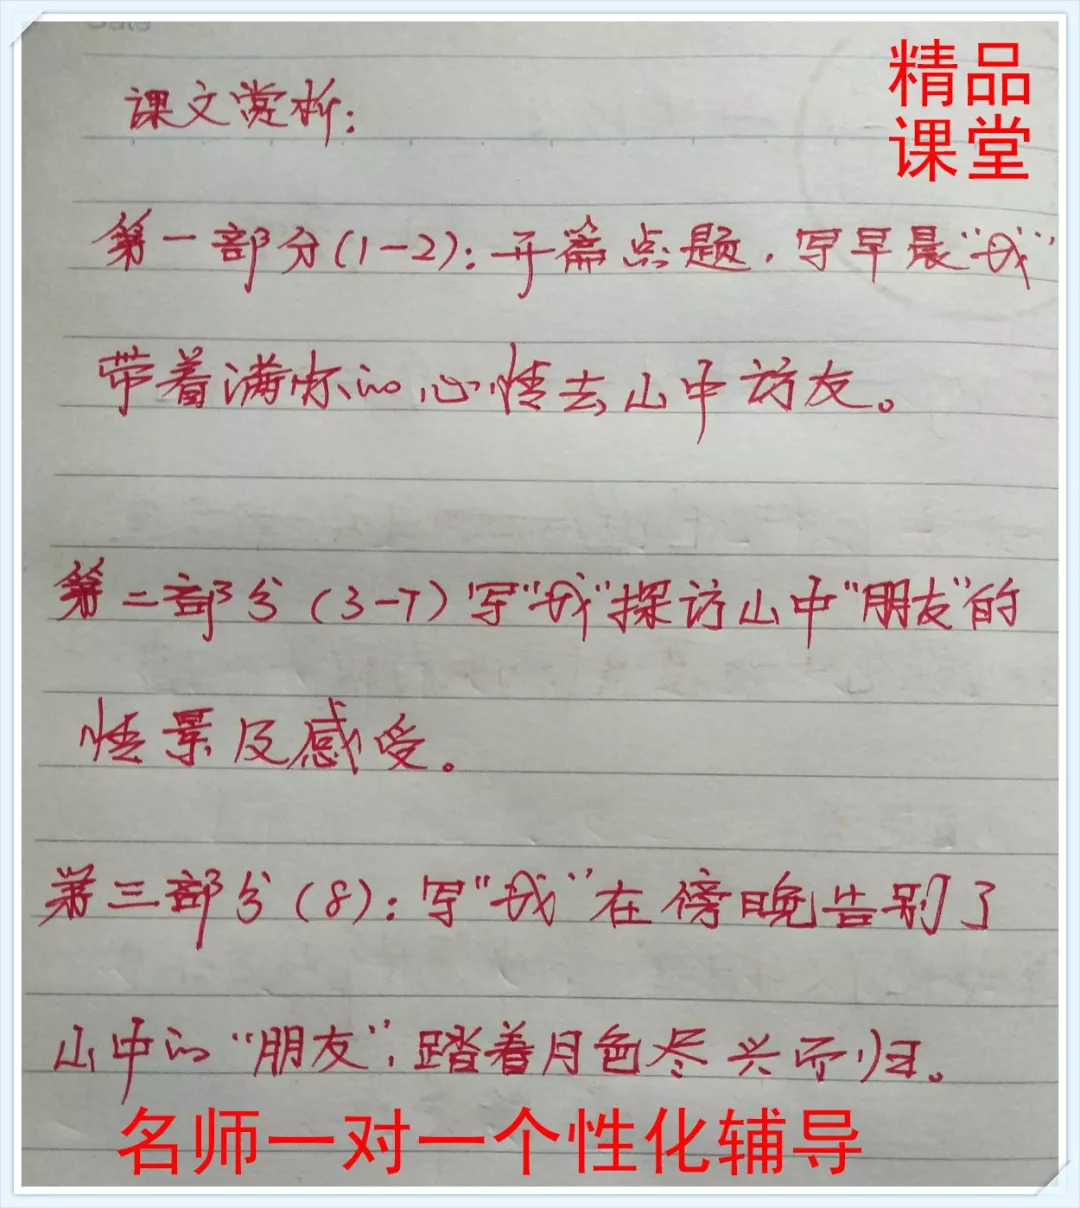 精品
课堂
课文赏析：
第一部分(1-2)：开篇点题，写早晨“我”
带着满怀的心情去山中访友。
第二部分(3-7)写“我”探访山中“朋友”的
情景及感受。
第三部分(8)：写“我”在傍晚告别了
山中的“朋友”，踏着月色尽兴而归。
名师一对一个性化辅导